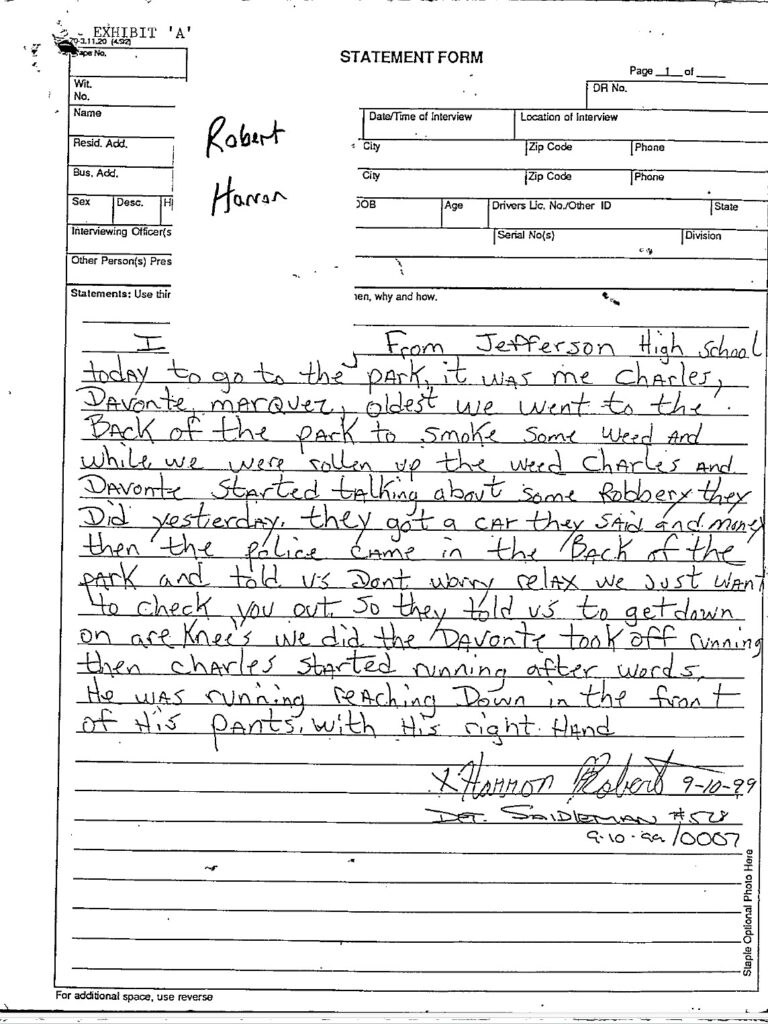 EXHIBIT 'A'
70-3.11.20 (4/92)
STATEMENT FORM
Tape No.
Page 1 of
Wit.
No.
DR No.
Name
Date/Time of Interview
Location of Interview
Robert
Resid. Add.
City
Zip Code
Phone
Bus. Add.
City
Zip Code
Phone
Harron
Sex
Desc.
H
DOB
Age
Drivers Lic. No./Other ID
State
Interviewing Officer(s
Serial No(s)
Division
Other Person(s) Pres
Statements: Use thir
en, why and how.
I From Jefferson High School
today to go to the PArk, it wAs me ChArles,
DAvonte, mArquez, oldest we went to the
BAck of the pArk to smoke some weed And
while we were rollen up the weed ChArles And
DAvonte stArted tAlking about some Robbery they
Did yesterdAy. they got a cAr they sAid and money
then the police cAme in the BAck of the
pArk and told us Dont worry relAx we just wAnt
to check you out. So they told us to get down
on are Knee's we did the DAvonte took off running
then chArles stArted running after words.
He wAs running reAching Down in the front
of His pAnts, with His right HAnd
X Harron Robert 9-10-99
Det. SAidleman #528
9-10-99/0007
Staple Optional Photo Here
For additional space, use reverse